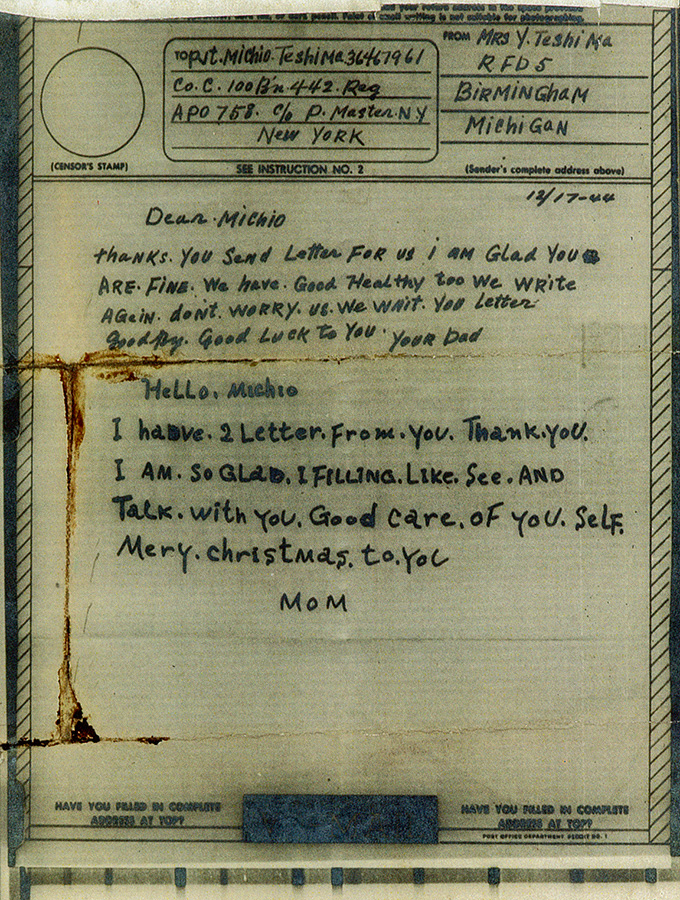 your return address in the space provided
writing is not suitable for photographing.
TO Pvt. Michio. Teshima 36467961
Co. C. 100 B'n 442. Reg
APO 758. c/o P. Master N.Y
New York
(CENSOR'S STAMP)
SEE INSTRUCTION NO. 2
FROM MRS Y. Teshima
RFD 5
BIRMINGHAM
MICHIGAN
(Sender's complete address above)
12/17-44
Dear. Michio
thanks. You Send Letter FOR us i AM Glad You
ARE. FINE. We have. Good Healthy too We WRite
AGain. don't. WORRY. us. We WAit. You Letter
goodBy. Good Luck to You. Your Dad
Hello. Michio
I have. 2 Letter. From. you. Thank. you.
I AM. So GLAD. I FILLING. Like. See. AND
Talk. with you. Good care. of you. Self.
Mery. christmas. to. you
MOM
HAVE YOU FILLED IN COMPLETE
ADDRESS AT TOP?
HAVE YOU FILLED IN COMPLETE
ADDRESS AT TOP?
POST OFFICE DEPARTMENT PERMIT NO. 1